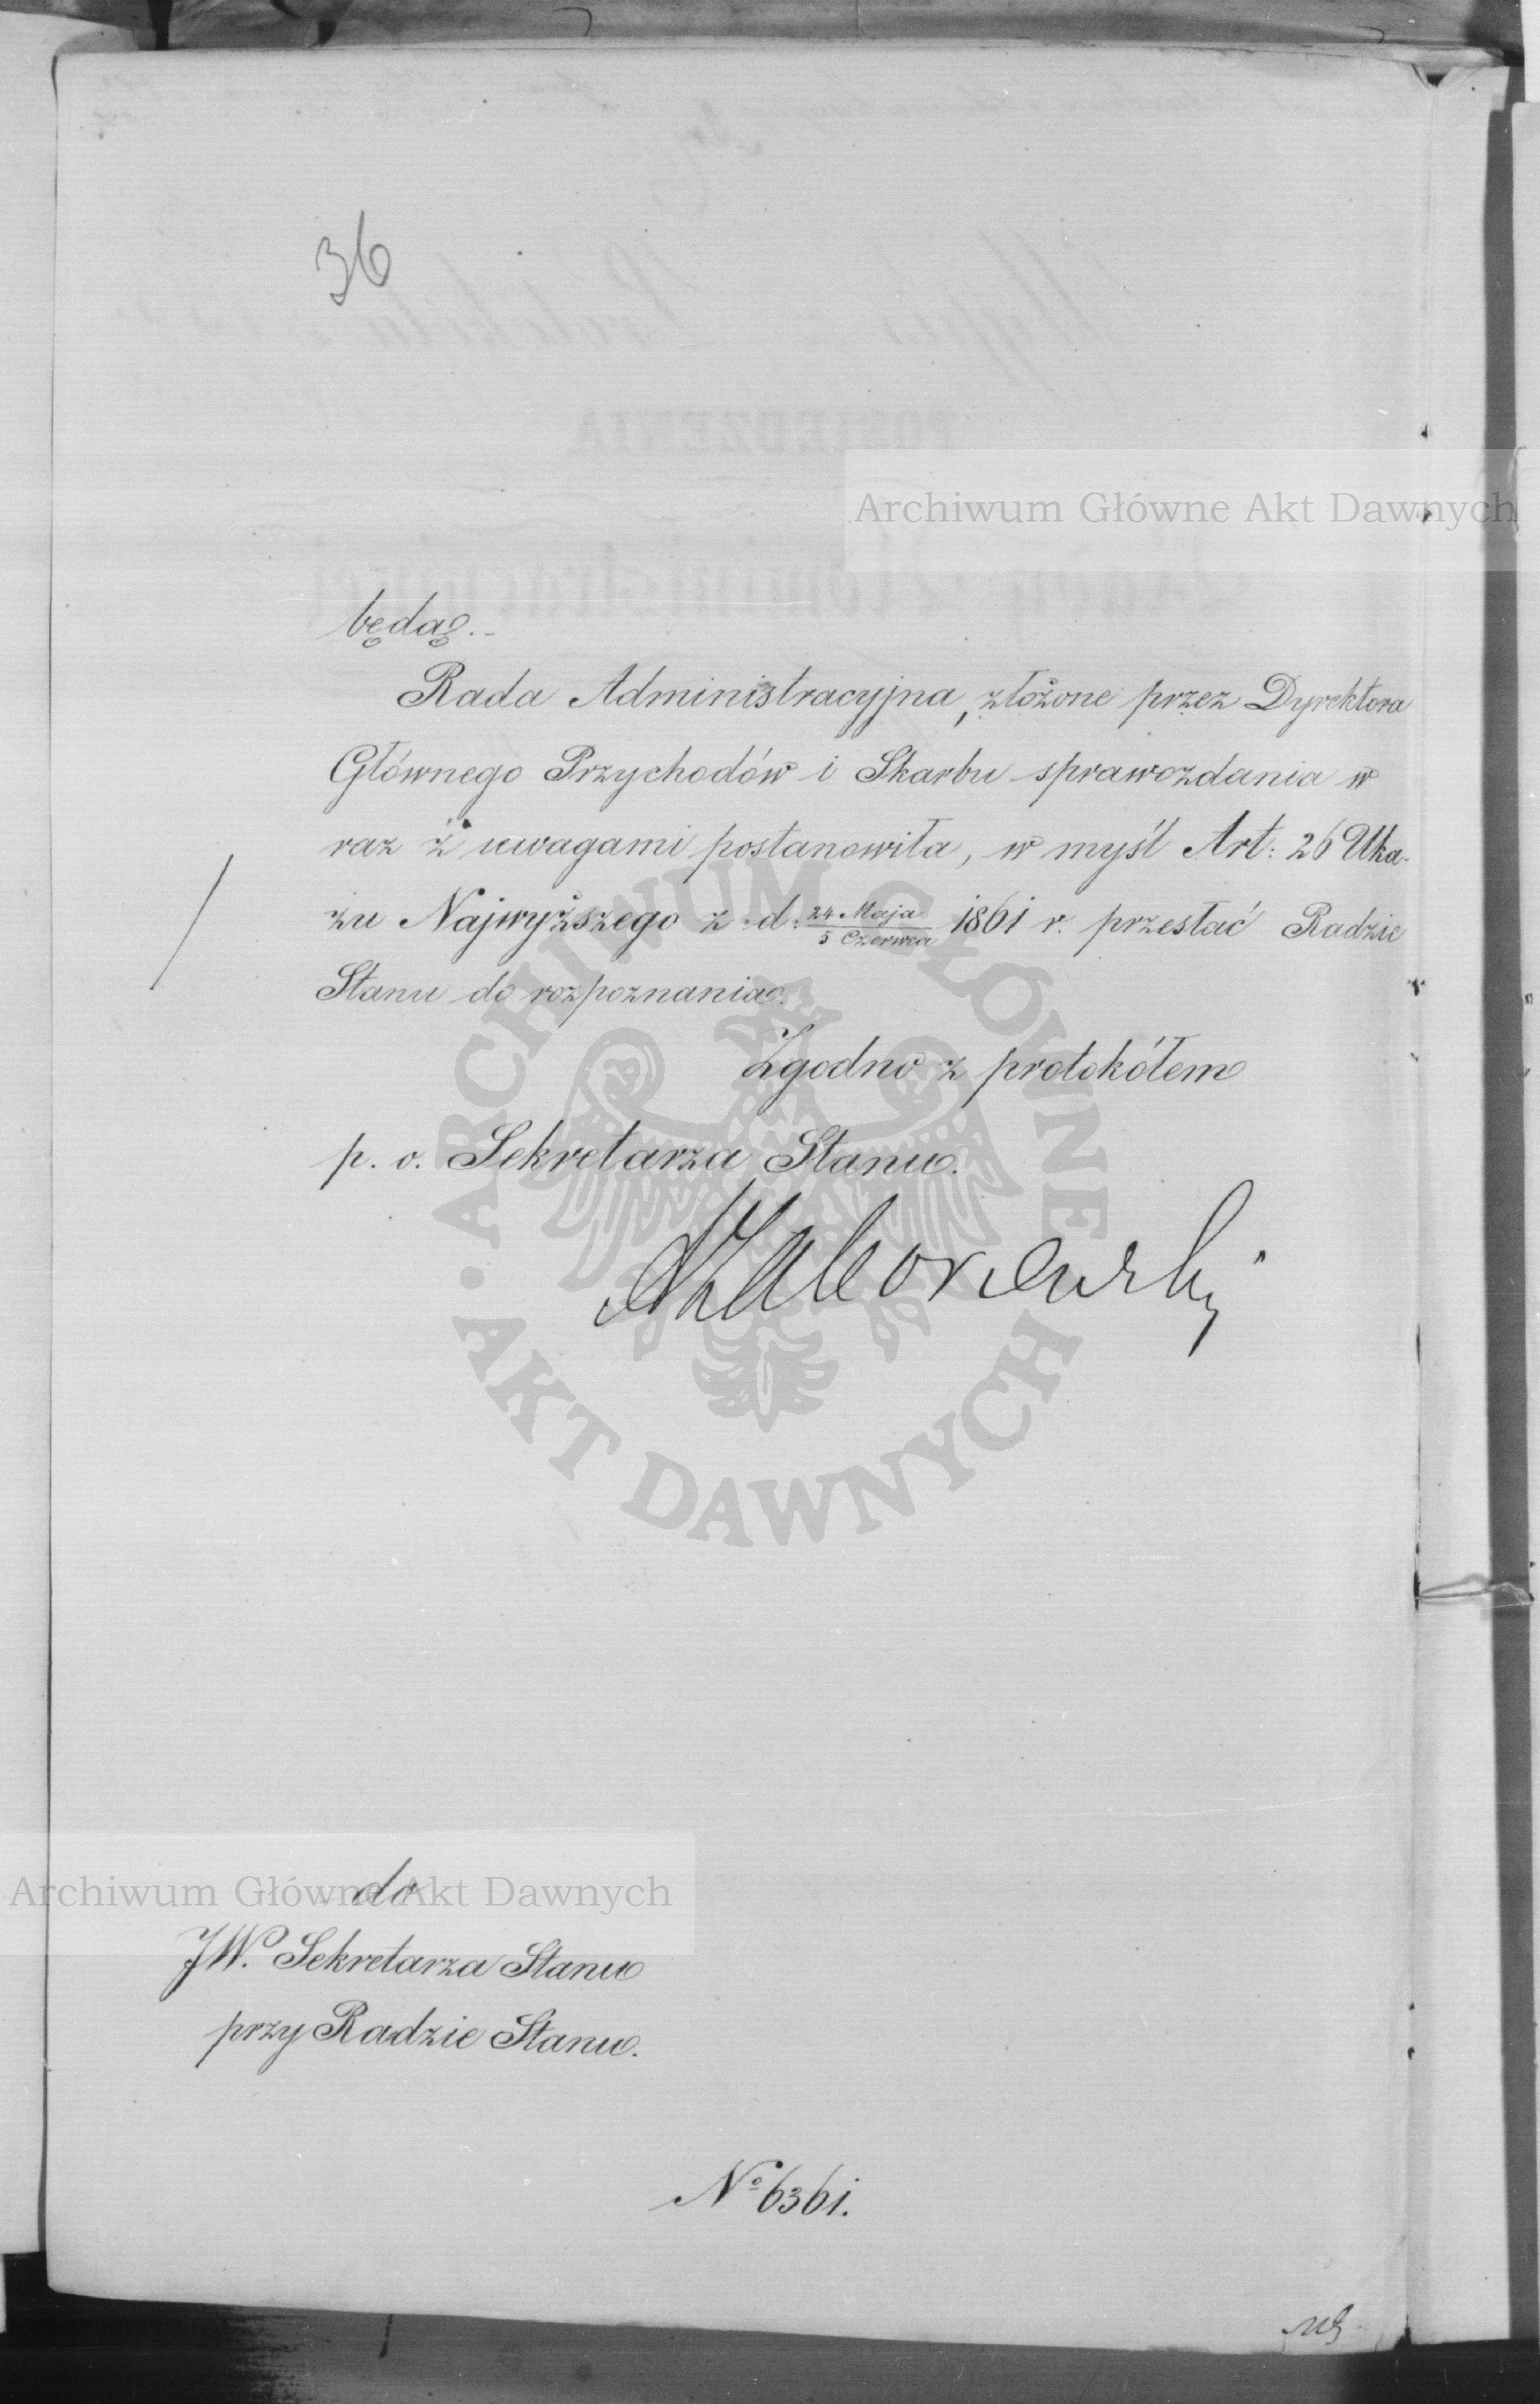 36
Archiwum Główne Akt Dawnych
będą.
Rada Administracyjna, złożone przez Dyrektora
Głównego Przychodów i Skarbu sprawozdania w
raz z uwagami postanowiła, w myśl Art: 26 Uka-
zu Najwyższego z d. 24 Maja / 5 Czerwca 1861 r. przesłać Radzie
Stanu do rozpoznania.
Zgodno z protokółem
p. o. Sekretarza Stanu.
ARCHIWUM GŁÓWNE • AKT DAWNYCH •
do
Archiwum Główne Akt Dawnych
JW. Sekretarza Stanu
przy Radzie Stanu.
No 6361.